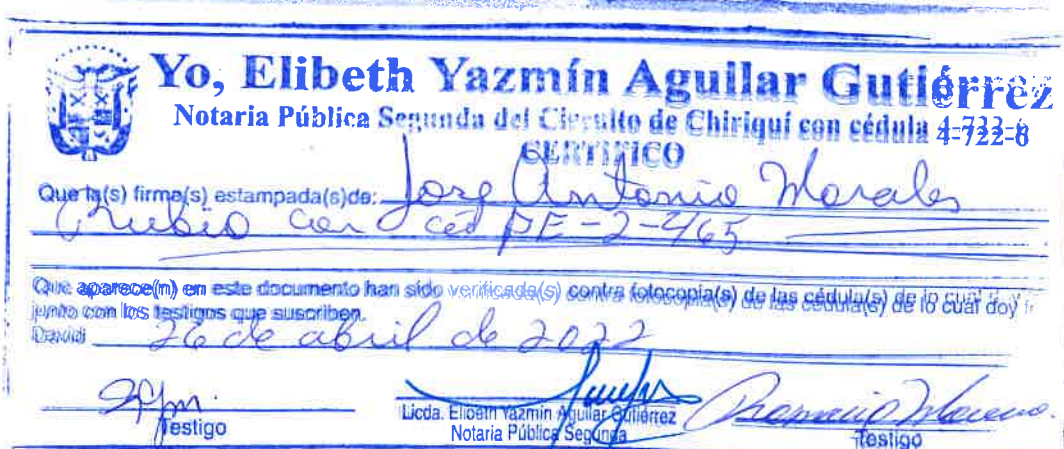 Yo, Elibeth Yazmín Aguilar Gutiérrez
Notaria Pública Segunda del Circuito de Chiriquí con cédula 4-722-6
CERTIFICO
Que la(s) firma(s) estampada(s)de: Jose Antonio Morales
Rubio con ced PE-2-465
Que aparece(n) en este documento han sido verificada(s) contra fotocopia(s) de las cédula(s) de lo cual doy
junto con los testigos que suscriben.
David 26 de abril de 2022
Testigo
Licda. Elibeth Yazmín Aguilar Gutiérrez
Notaria Pública Segunda
Testigo